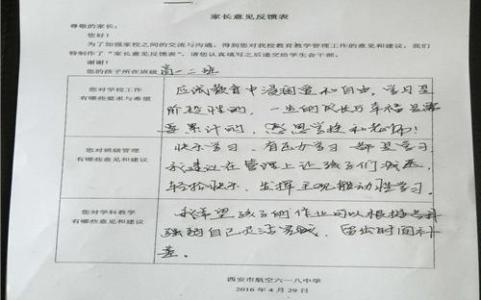 家长意见反馈表
尊敬的家长:
您好!
为了加强家校之间的交流与沟通,得到您对我校教育教学管理工作的意见和建议,我们
特制作了“家长意见反馈表”,请您认真填写之后递交给学生会干部。
谢谢!
您的孩子所在班级 高一二班
您对学校工作
有哪些要求与希望
应试教育中漫润量和自由,学习是
阶段性的,一生的成长与幸福是需
要累计的,感恩学校和老师!
您对班级管理
有哪些意见和建议
快乐学习、有压力学习都是学习
我建议在管理上让孩子们减压,
轻松快乐,发挥主观能动性学习。
您对学科教学
有哪些意见和建议
我希望孩子的作业可以根据学科
强弱自己灵活完成,留出时间补
差。
西安市航空六一八中学
2016 年 4 月 29 日